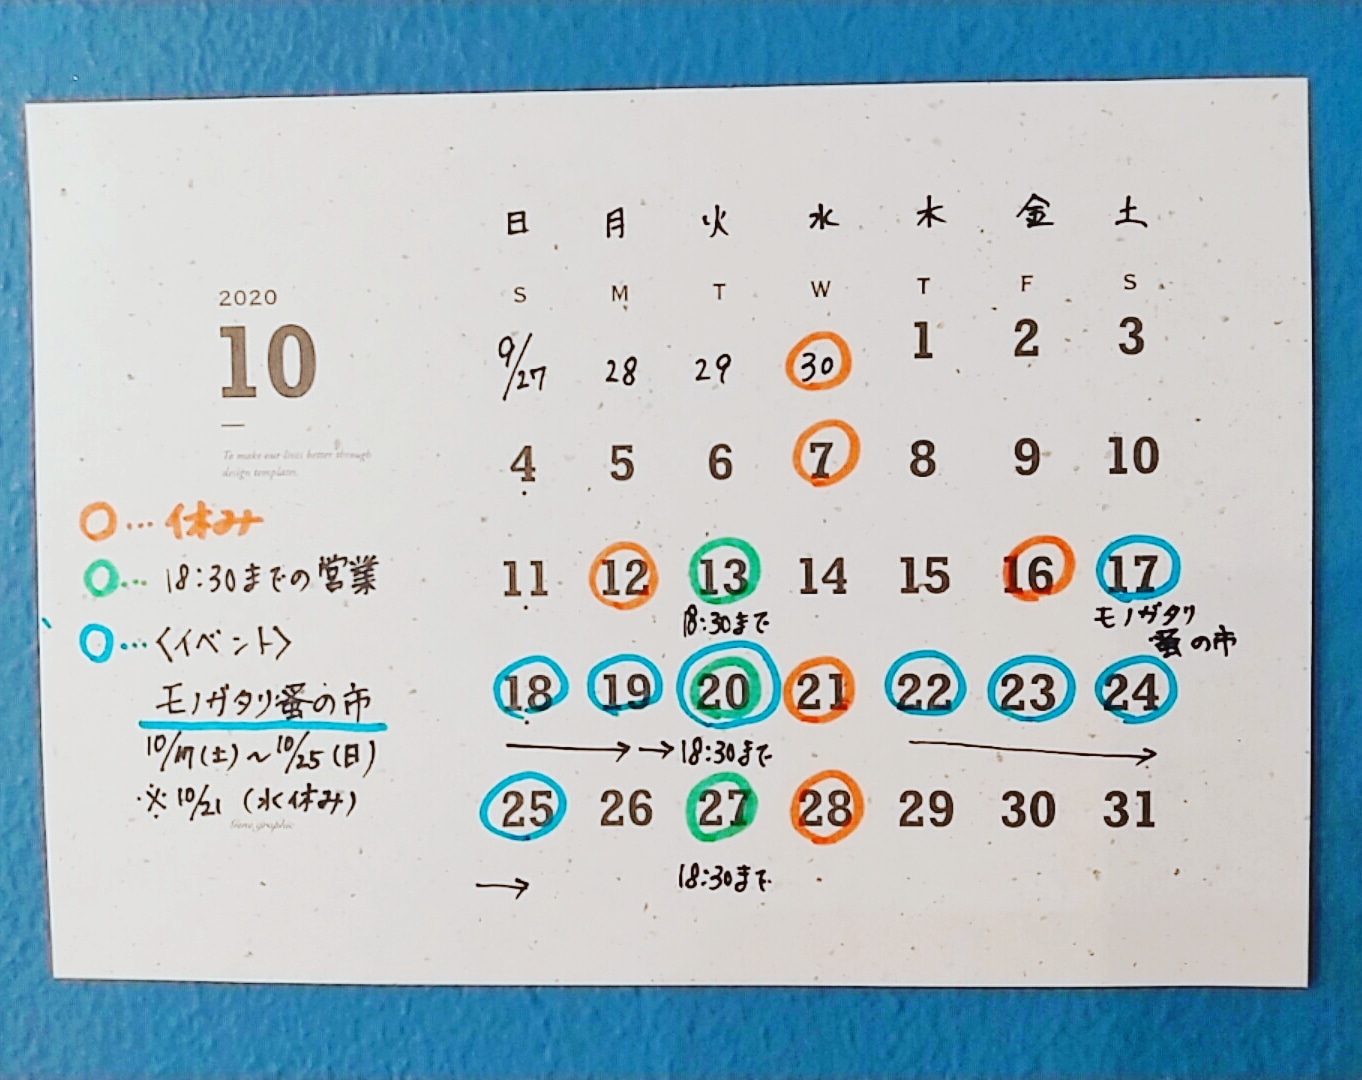 2020
10
To make our lives better through
design templates.
○… 休み
○… 18:30までの営業
○… 〈イベント〉
モノガタリ蚤の市
10/17(土)~10/25(日)
※10/21 (水休み)
日 月 火 水 木 金 土
S M T W T F S
9/27 28 29 30 1 2 3
4 5 6 7 8 9 10
11 12 13 14 15 16 17
18:30まで モノガタリ
蚤の市
18 19 20 21 22 23 24
→ → 18:30まで →
25 26 27 28 29 30 31
→ 18:30まで